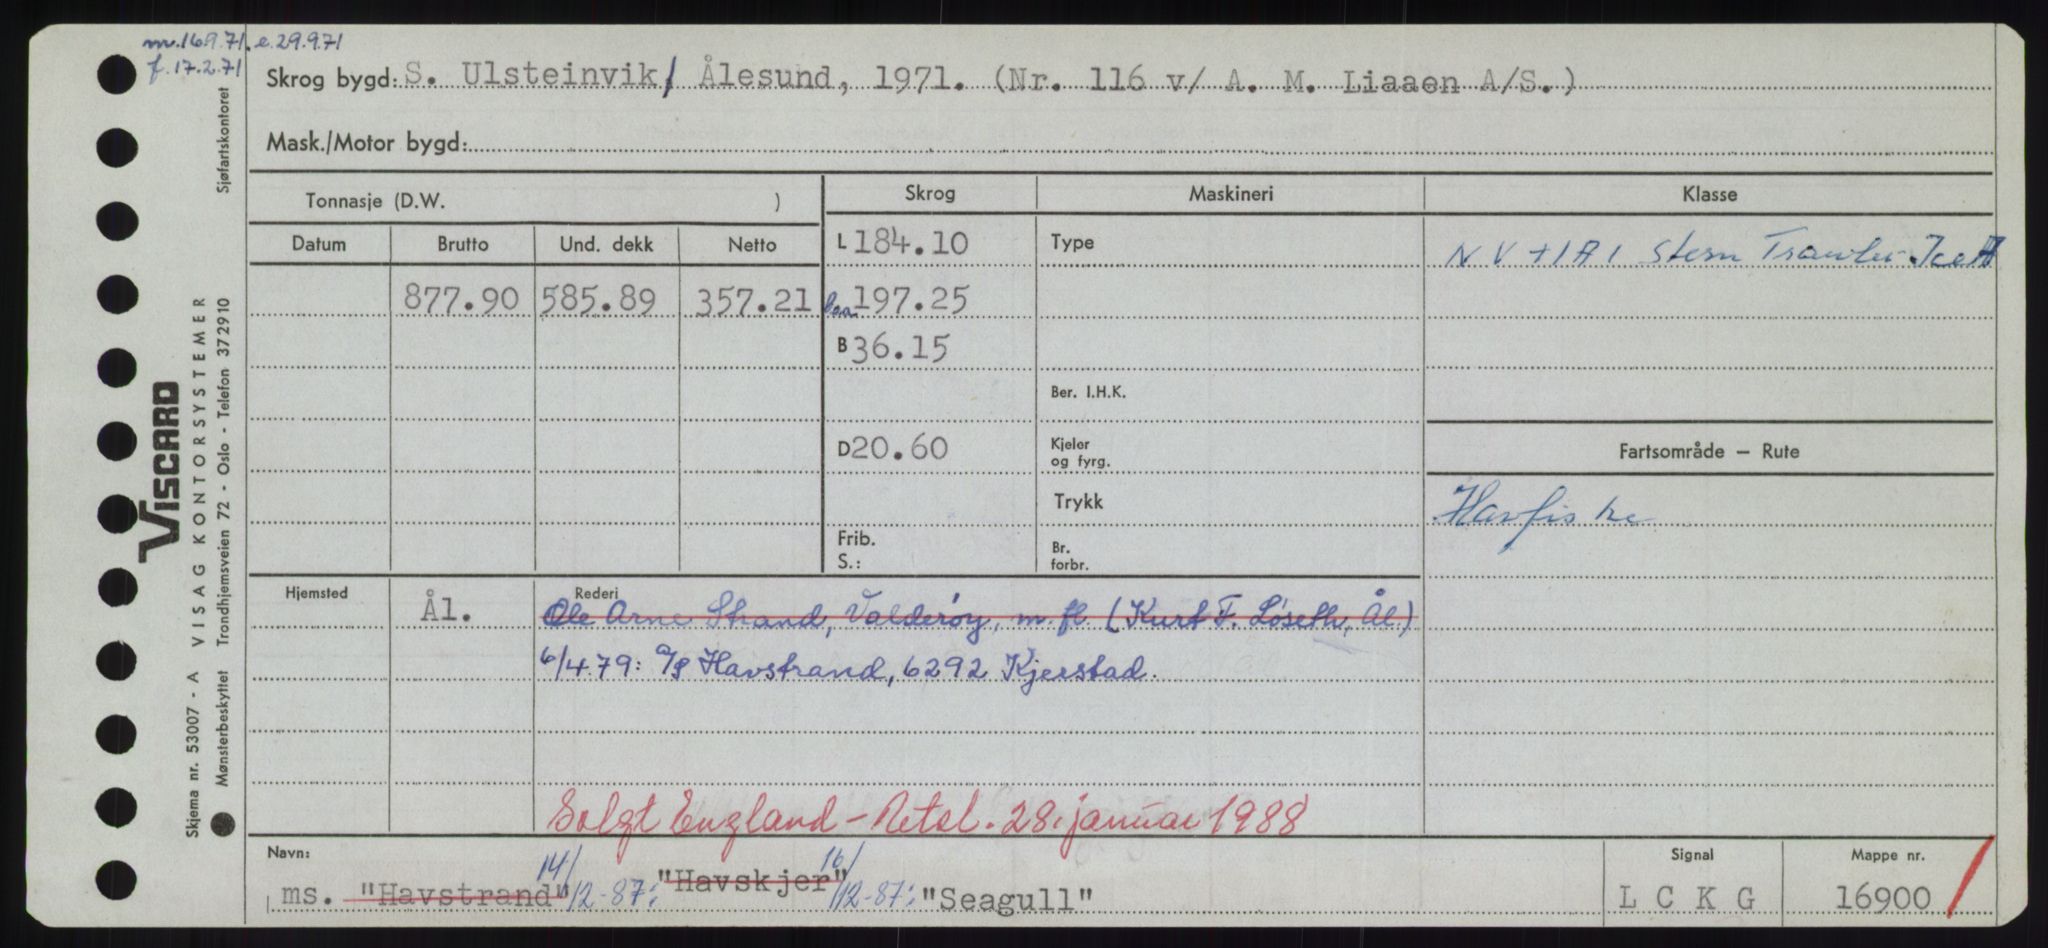 m.16.9.71. e.29.9.71
f.17.2.71
Skrog bygd: S. Ulsteinvik/ Ålesund, 1971. (Nr. 116 v/ A. M. Liaaen A/S.)
Mask./Motor bygd:
Tonnasje (D.W. )
Skrog Maskineri Klasse
Datum Brutto Und. dekk Netto
L 184.10 Type NV +1A1 Stern Trawler Ice
877.90 585.89 357.21 boa 197.25
B 36.15
Ber. I.H.K.
D 20.60 Kjeler og fyrg.
Fartsområde – Rute
Trykk
Havfiske
Frib.
S.:
Br. forbr.
Hjemsted Ål. Rederi
Ole Arne Strand, Valderøy, m.fl. (Kurt F. Løseth, Ål.)
6/4.79: A/S Havstrand, 6292 Kjerstad.
Solgt England – Retel. 28. januar 1988
Navn:
ms. "Havstrand" 14/12-87: "Havskjer" 16/12-87: "Seagull"
Signal
L C K G
Mappe nr.
16900
VISCARD
VISAG KONTORSYSTEMER
Skjema nr. 53007 - A
Mønsterbeskyttet Trondhjemsveien 72 - Oslo - Telefon 372910 Sjøfartskontoret